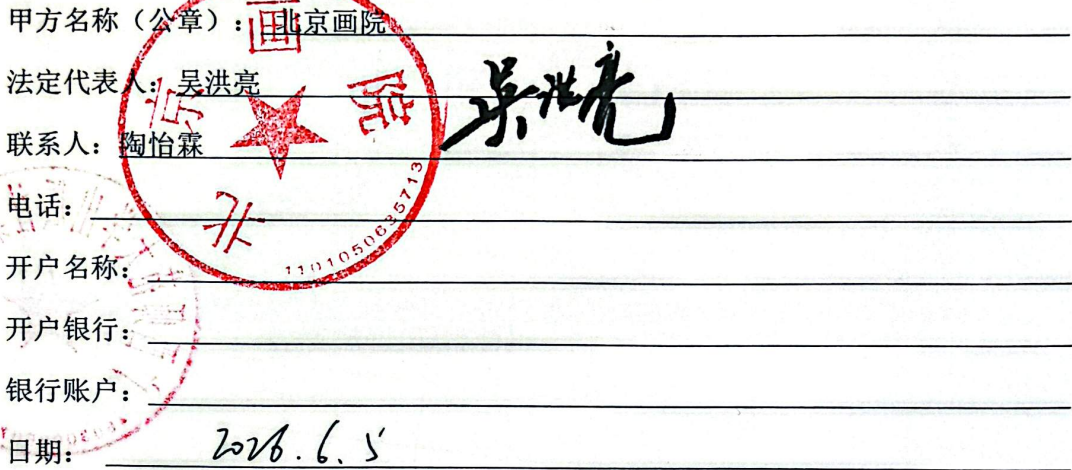 甲方名称（公章）：北京画院
法定代表人：吴洪亮
吴洪亮
联系人：陶怡霖
电话：
开户名称：
开户银行：
银行账户：
日期：2026.6.5
北京画院
1101050635713